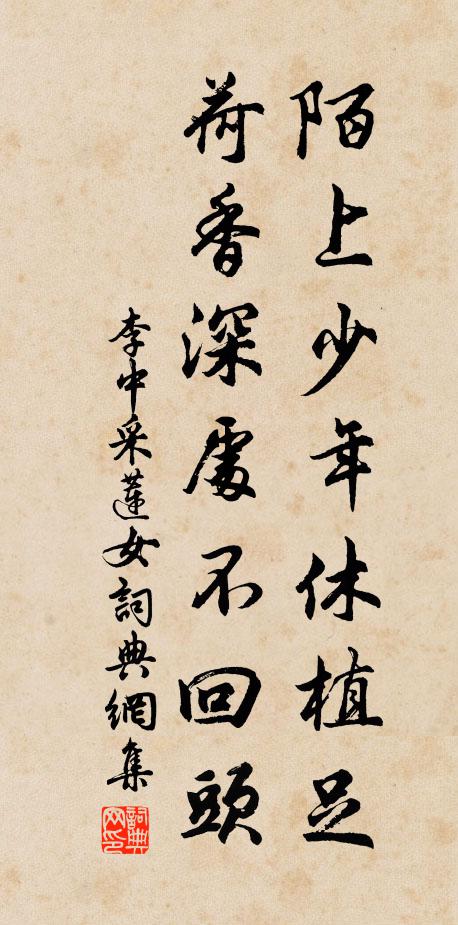 陌上少年休植足
荷香深處不回頭
李中采蓮女詞典網集
詞典网印